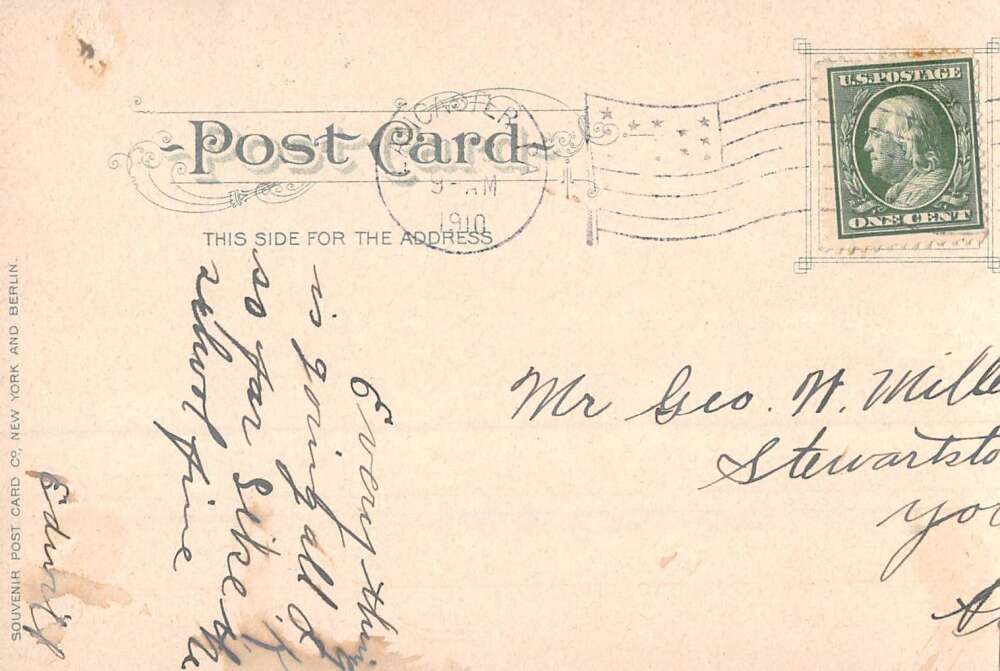 Post Card
THIS SIDE FOR THE ADDRESS
LANCASTER, PA
9- AM
1910
U.S. POSTAGE
ONE CENT
Every thing
is going all O
so far I like the
school fine
Mr Geo. W. Mille
Stewartsto
Yo
SOUVENIR POST CARD CO., NEW YORK AND BERLIN.